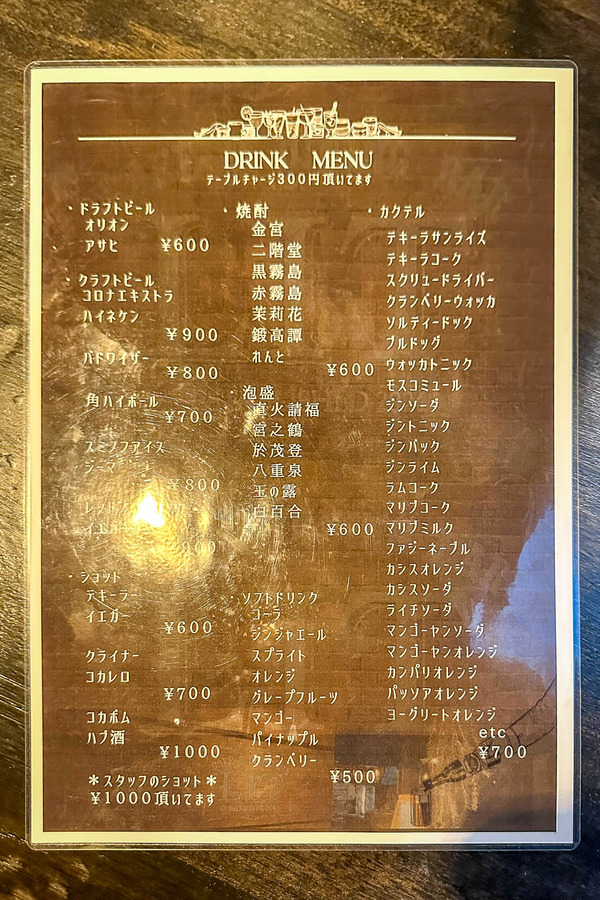 DRINK MENU
テーブルチャージ300円頂いてます
・ドラフトビール
オリオン
アサヒ ¥600
・クラフトビール
コロナエキストラ
ハイネケン
¥900
バドワイザー
¥800
角ハイボール
¥700
スミノフアイス
ジーマ
¥800
イエガー
900
・ショット
テキーラー
イエガー
¥600
クライナー
コカレロ
¥700
コカボム
ハブ酒
¥1000
＊スタッフのショット＊
¥1000頂いてます
・焼酎
金宮
二階堂
黒霧島
赤霧島
茉莉花
鍛高譚
れんと
¥600
・泡盛
直火請福
宮之鶴
於茂登
八重泉
玉の露
白百合
¥600
・ソフトドリンク
コーラ
ジンジャエール
スプライト
オレンジ
グレープフルーツ
マンゴー
パイナップル
クランベリー
¥500
・カクテル
テキーラサンライズ
テキーラコーク
スクリュードライバー
クランベリーウォッカ
ソルティードック
ブルドッグ
ウォッカトニック
モスコミュール
ジンソーダ
ジントニック
ジンバック
ジンライム
ラムコーク
マリブコーク
マリブミルク
ファジーネーブル
カシスオレンジ
カシスソーダ
ライチソーダ
マンゴーヤンソーダ
マンゴーヤンオレンジ
カンパリオレンジ
パッソアオレンジ
ヨーグリートオレンジ
etc
¥700